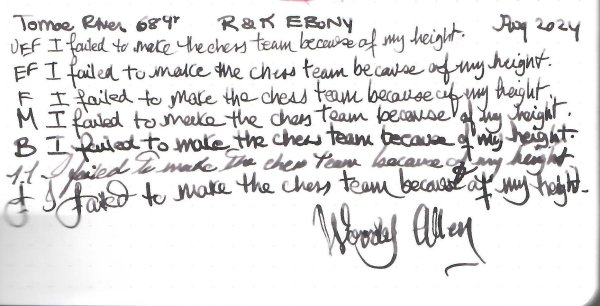 Tomoe River 68gr R & K EBONY Aug 2024
UEF I failed to make the chess team because of my height.
EF I failed to make the chess team because of my height.
F I failed to make the chess team because of my height.
M I failed to make the chess team because of my height.
B I failed to make the chess team because of my height.
1.1 I failed to make the chess team because of my height
I failed to make the chess team because of my height.
Woody Allen